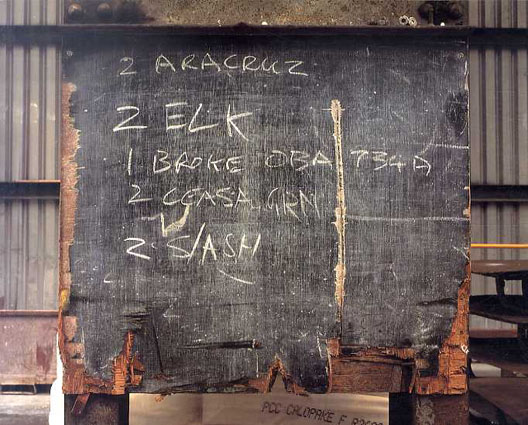 2 ARACRUZ
2 ELK
1 BROKE OBA 734A
2 CEASA GRN
2 S/ASH
PCC CALOPAKE F